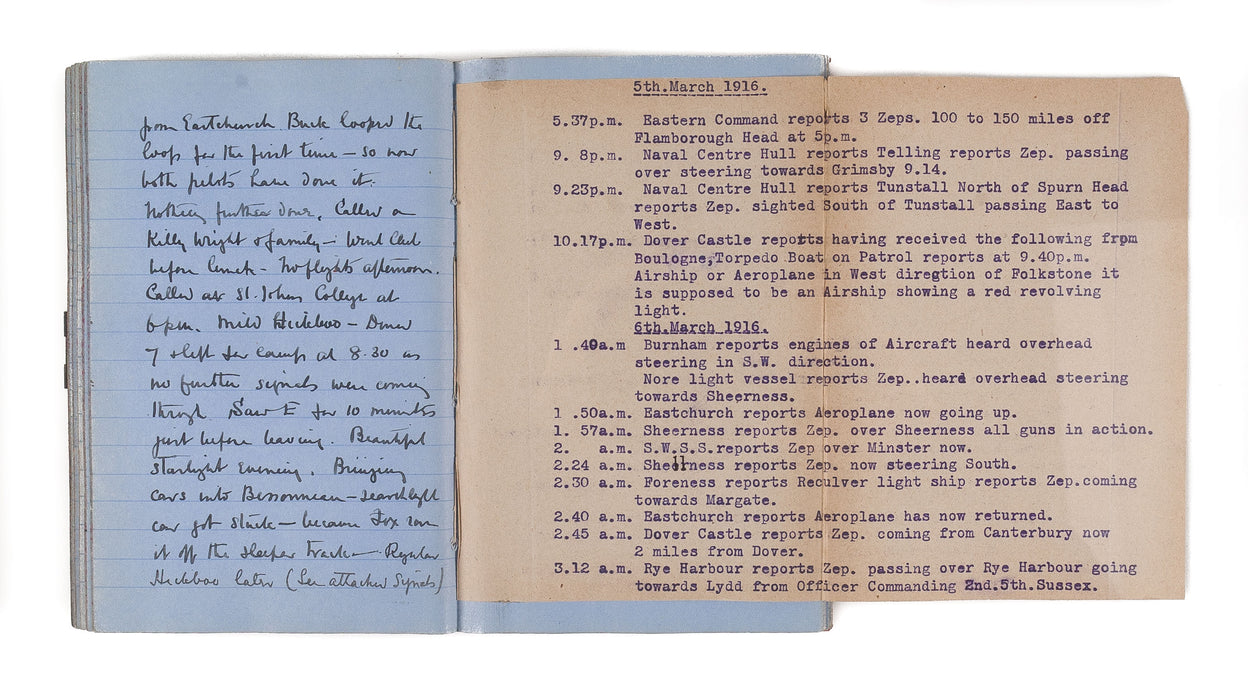 from Eastchurch Buck looped the
loop for the first time – so now
both pilots have done it.
Nothing further done. Called on
Killy Wright & family – Went Club
before lunch – No flights afternoon.
Called at St. Johns College at
6 p.m. Mild Hickboo – Dined
7 & left for camp at 8.30 as
no further signals were coming
through. Saw E for 10 minutes
just before leaving. Beautiful
starlight evening. Bringing
cars into Bessonneau – searchlight
car got stuck – because Fox ran
it off the sleeper track – Regular
Hickboo later (See attached Signals)
5th.March 1916.
5.37p.m. Eastern Command reports 3 Zeps. 100 to 150 miles off
Flamborough Head at 5p.m.
9. 8p.m. Naval Centre Hull reports Telling reports Zep. passing
over steering towards Grimsby 9.14.
9.23p.m. Naval Centre Hull reports Tunstall North of Spurn Head
reports Zep. sighted South of Tunstall passing East to
West.
10.17p.m. Dover Castle reports having received the following from
Boulogne,Torpedo Boat on Patrol reports at 9.40p.m.
Airship or Aeroplane in West diregtion of Folkstone it
is supposed to be an Airship showing a red revolving
light.
6th.March 1916.
1 .40a.m Burnham reports engines of Aircraft heard overhead
steering in S.W. direction.
Nore light vessel reports Zep..heard overhead steering
towards Sheerness.
1 .50a.m. Eastchurch reports Aeroplane now going up.
1. 57a.m. Sheerness reports Zep. over Sheerness all guns in action.
2. a.m. S.W.S.S.reports Zep over Minster now.
2.24 a.m. Sheerness reports Zep. now steering South.
2.30 a.m. Foreness reports Reculver light ship reports Zep.coming
towards Margate.
2.40 a.m. Eastchurch reports Aeroplane has now returned.
2.45 a.m. Dover Castle reports Zep. coming from Canterbury now
2 miles from Dover.
3.12 a.m. Rye Harbour reports Zep. passing over Rye Harbour going
towards Lydd from Officer Commanding 2nd.5th.Sussex.